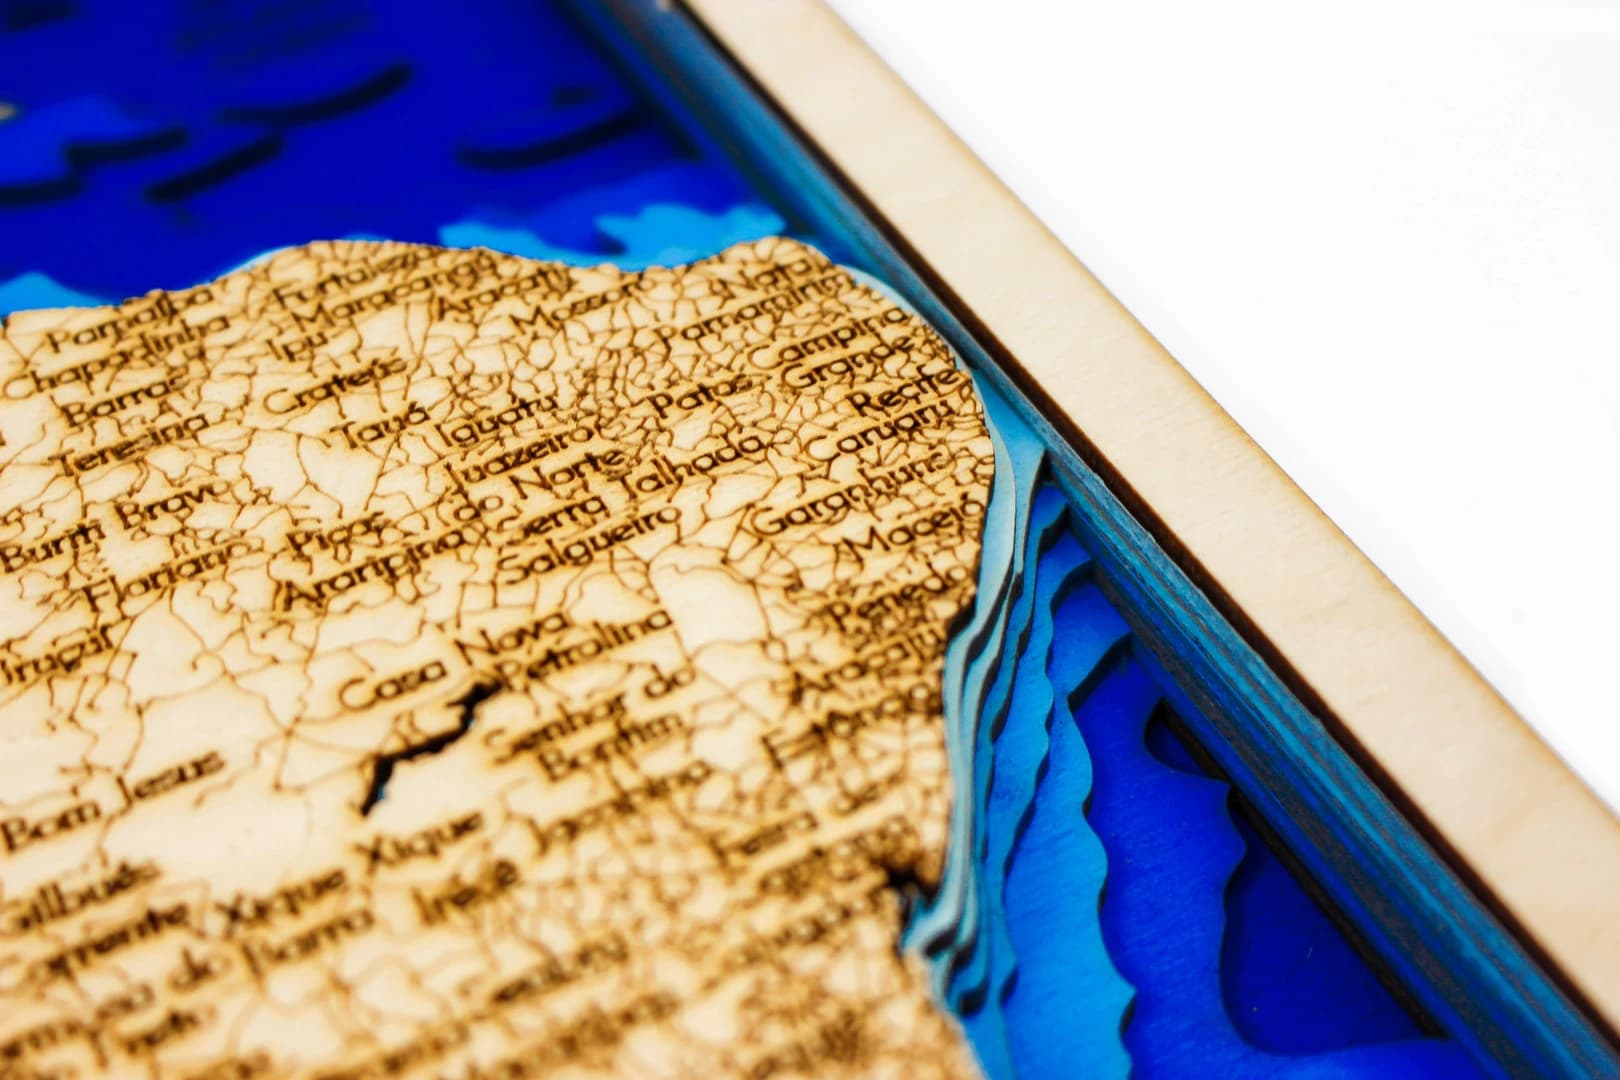 Parnaíba
Chapadinha
Barras
Teresina
Fortaleza
Maracanaú
Ipu
Aracati
Mossoró
Natal
Parnamirim
Crateús
Tauá
Iguatu
Patos
Campina
Grande
Recife
Caruaru
Juazeiro
do Norte
Serra Talhada
Garanhuns
Maceió
Buriti Bravo
Floriano
Picos
Araripina
Salgueiro
Penedo
Aracaju
Casa Nova
Petrolina
Senhor do
Bonfim
Estância
Bom Jesus
Xique Xique
Jacobina
Irecê
Feira de
Barra